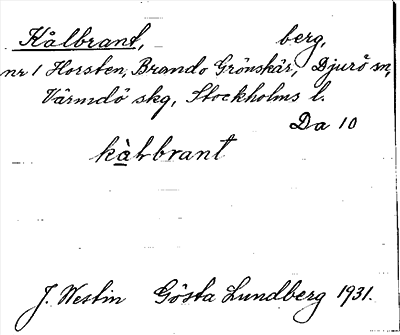 Kålbrant, berg,
nr 1 Horsten, Brando Grönskär, Djurö sn,
Värmdö skg, Stockholms l.
Da 10
kàlbrant
J. Westin Gösta Lundberg 1931.